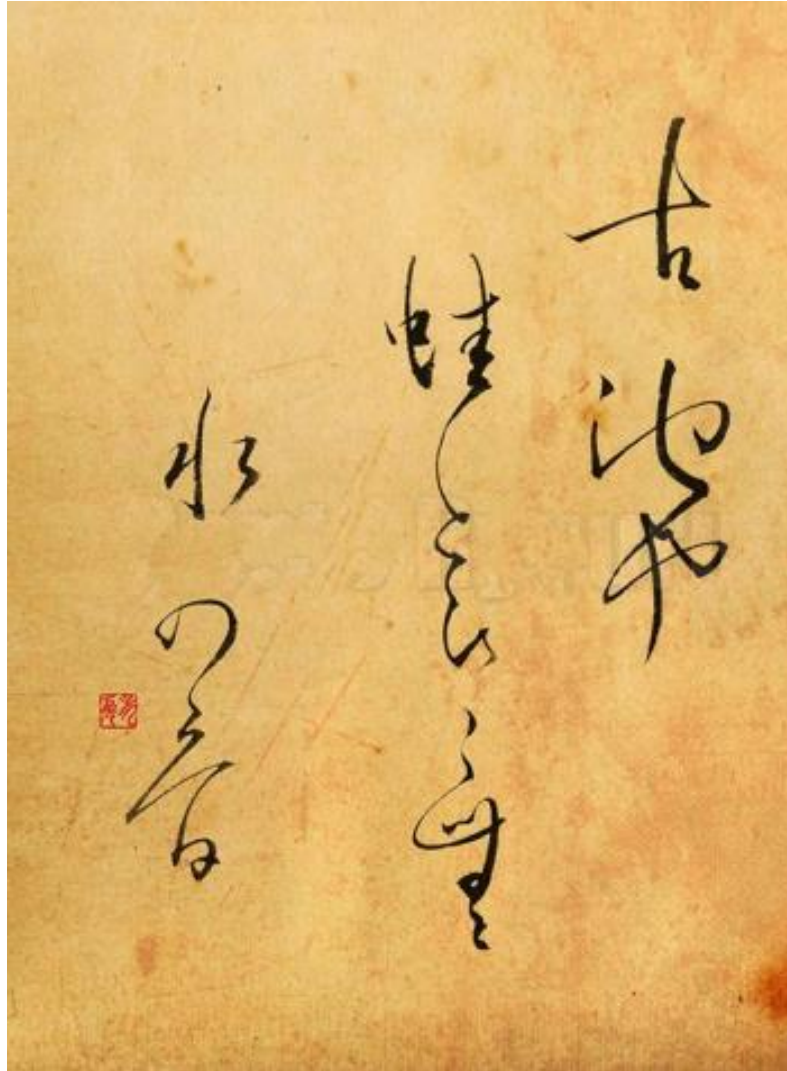 古池や
蛙とひこむ
水の音